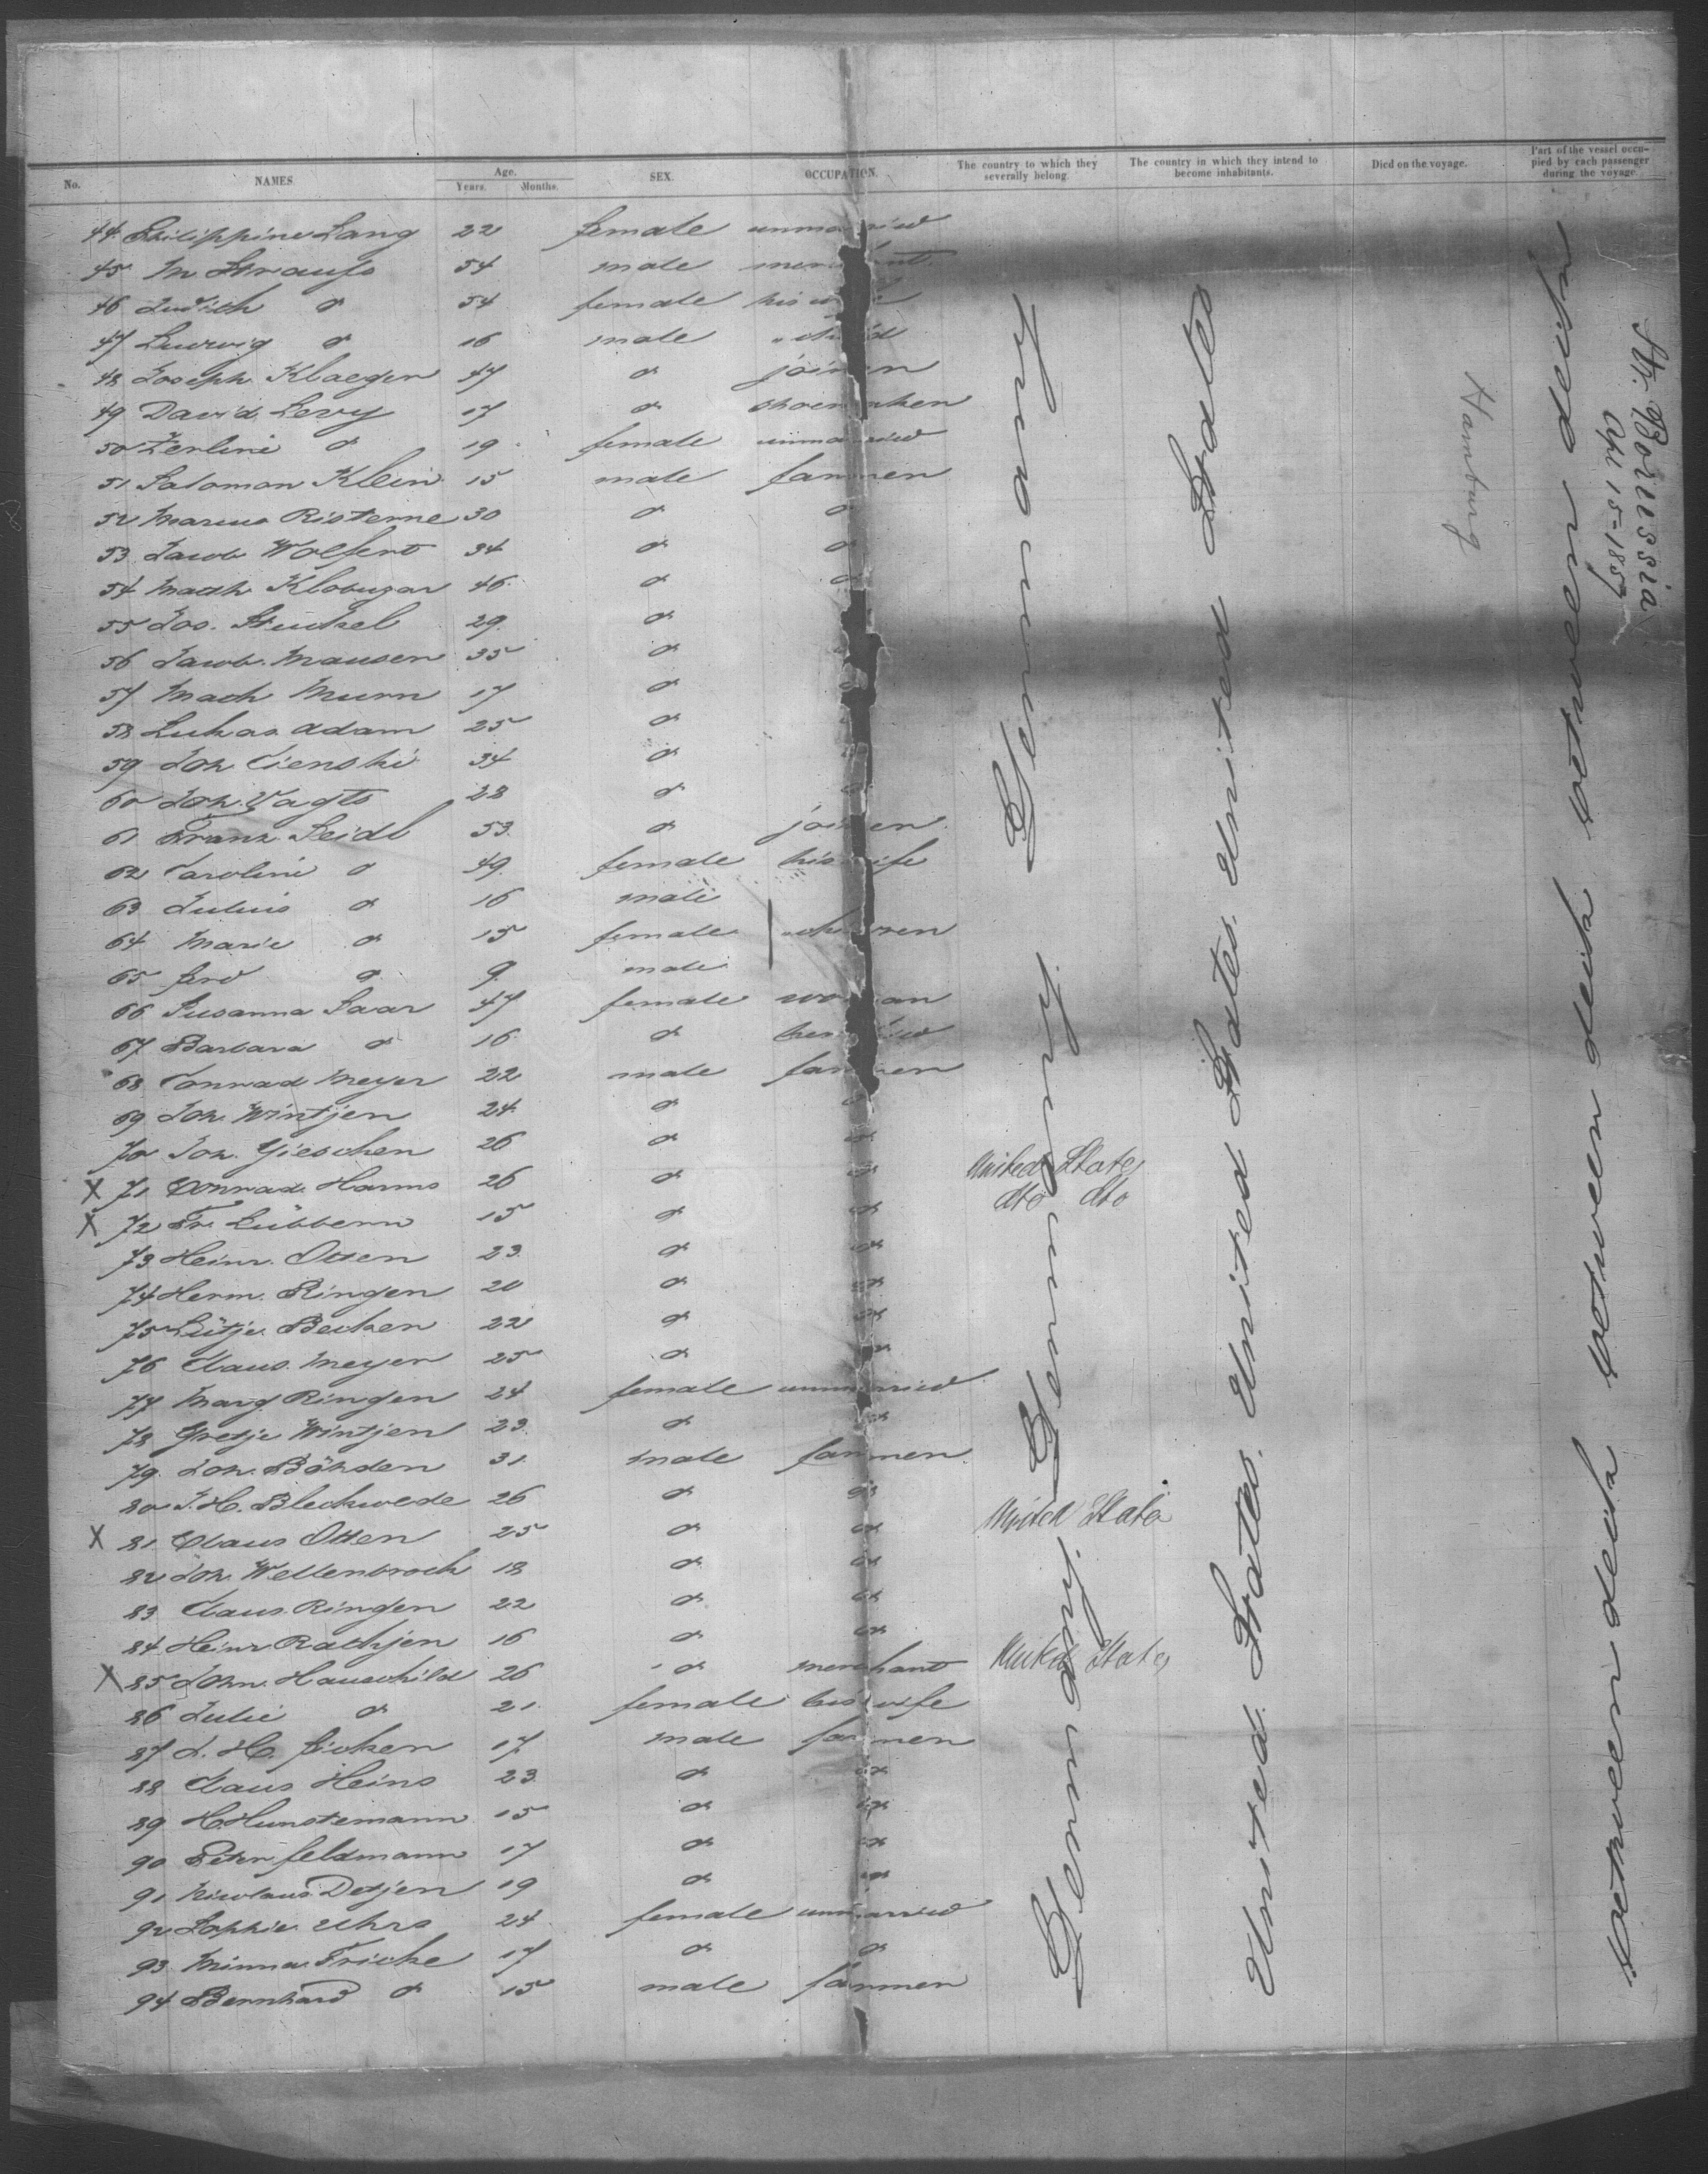 No. NAMES. Age. Years. Months. SEX. OCCUPATION. The country to which they severally belong. The country in which they intend to become inhabitants. Died on the voyage. Part of the vessel occupied by each passenger during the voyage.
44 Philippine Lang 22 female unmarried
45 M. Strauss 54 male merchant
46 Judith do 54 female his wife
47 Ludwig do 16 male child
48 Joseph Klaeger 47 do joiner
49 David Levy 17 do shoemaker
50 Zerline do 19 female unmarried
51 Salomon Klein 15 male farmer
52 Marcus Risterne 30 do do
53 Jacob Wolfert 34 do do
54 Math Klobuzar 46 do do
55 Jos. Stuckel 29 do
56 Jacob Mausen 35 do
57 Math Murn 17 do do
58 Lukas Adam 25 do
59 Joh. Cienski 34 do
60 Joh. Vagts 28 do
61 Franz Seidl 53 do joiner
62 Caroline do 49 female his wife
63 Julius do 16 male
64 Marie do 15 female children
65 Ferd do 9 male
66 Susanna Saar 47 female woman
67 Barbara do 16 do
68 Conrad Meyer 22 male farmer
69 Joh. Wintjen 24 do do
70 Joh. Gieschen 26 do do
X 71 Conrad Harms 26 do do United States
X 72 Fr. Lübbern 15 do do dto dto
73 Heinr. Otten 23 do do
74 Herm. Ringen 20 do do
75 Lütje Becken 22 do do
76 Claus Meyer 25 do do
77 Marg Ringen 24 female unmarried
78 Gretje Wintjen 23 do do
79 Joh. Böhden 31 male farmer
80 J. H. Bleckwede 26 do do
X 81 Claus Otten 25 do do United States
82 Joh. Wellenbrock 18 do do
83 Claus Ringen 22 do do
84 Heinr Rathjen 16 do do
X 85 John Hauschild 26 do merchant United States
86 Julie do 21 female his wife
87 J. H. Ficken 17 male farmer
88 Claus Heins 23 do do
89 H. Hunstemann 15 do do
90 Peter Feldmann 17 do do
91 Nicolaus Detjen 19 do do
92 Sophie Uhrs 24 female unmarried
93 Minna Fricke 17 do do
94 Bernhard do 15 male farmer
Germany Germany Germany Germany
United States United States United States United States
Hamburg
betweendeck betweendeck betweendeck
Str. Borussia
Apl 15-1857